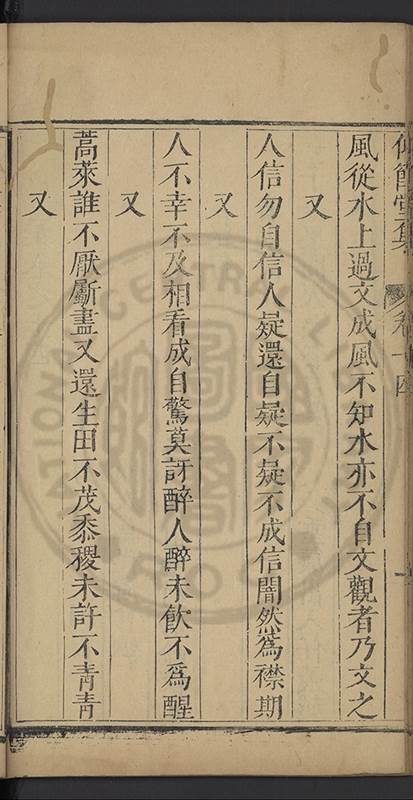 仰節堂集 卷十四
風從水上過文成風不知水亦不自文觀者乃文之
又
人信勿自信人疑還自疑不疑不成信闇然為襟期
又
人不幸不及相看成自驚莫訝醉人醉未飲不為醒
又
蒿萊誰不厭斸盡又還生田不茂黍稷未許不青青
又